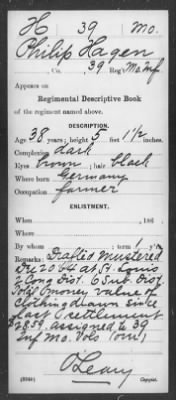 H 39 Mo.
Philip Hagen
, Co. , 39 Reg't Mo. Inf
Appears on
Regimental Descriptive Book
of the regiment named above.
DESCRIPTION.
Age 38 years; height 5 feet 1½ inches
Complexion dark
Eyes brown; hair black
Where born Germany
Occupation farmer
ENLISTMENT.
When , 186 .
Where
By whom ; term 1 y'rs.
Remarks: Drafted Mustered
Dec 20 64 at St. Louis
2 Cong Dist. 6 Sub Dist.
Total money value of
Clothing drawn since
last settlement
$28.59, assigned to 39
Inf Mo. Vols
O'Leary
Copyist.